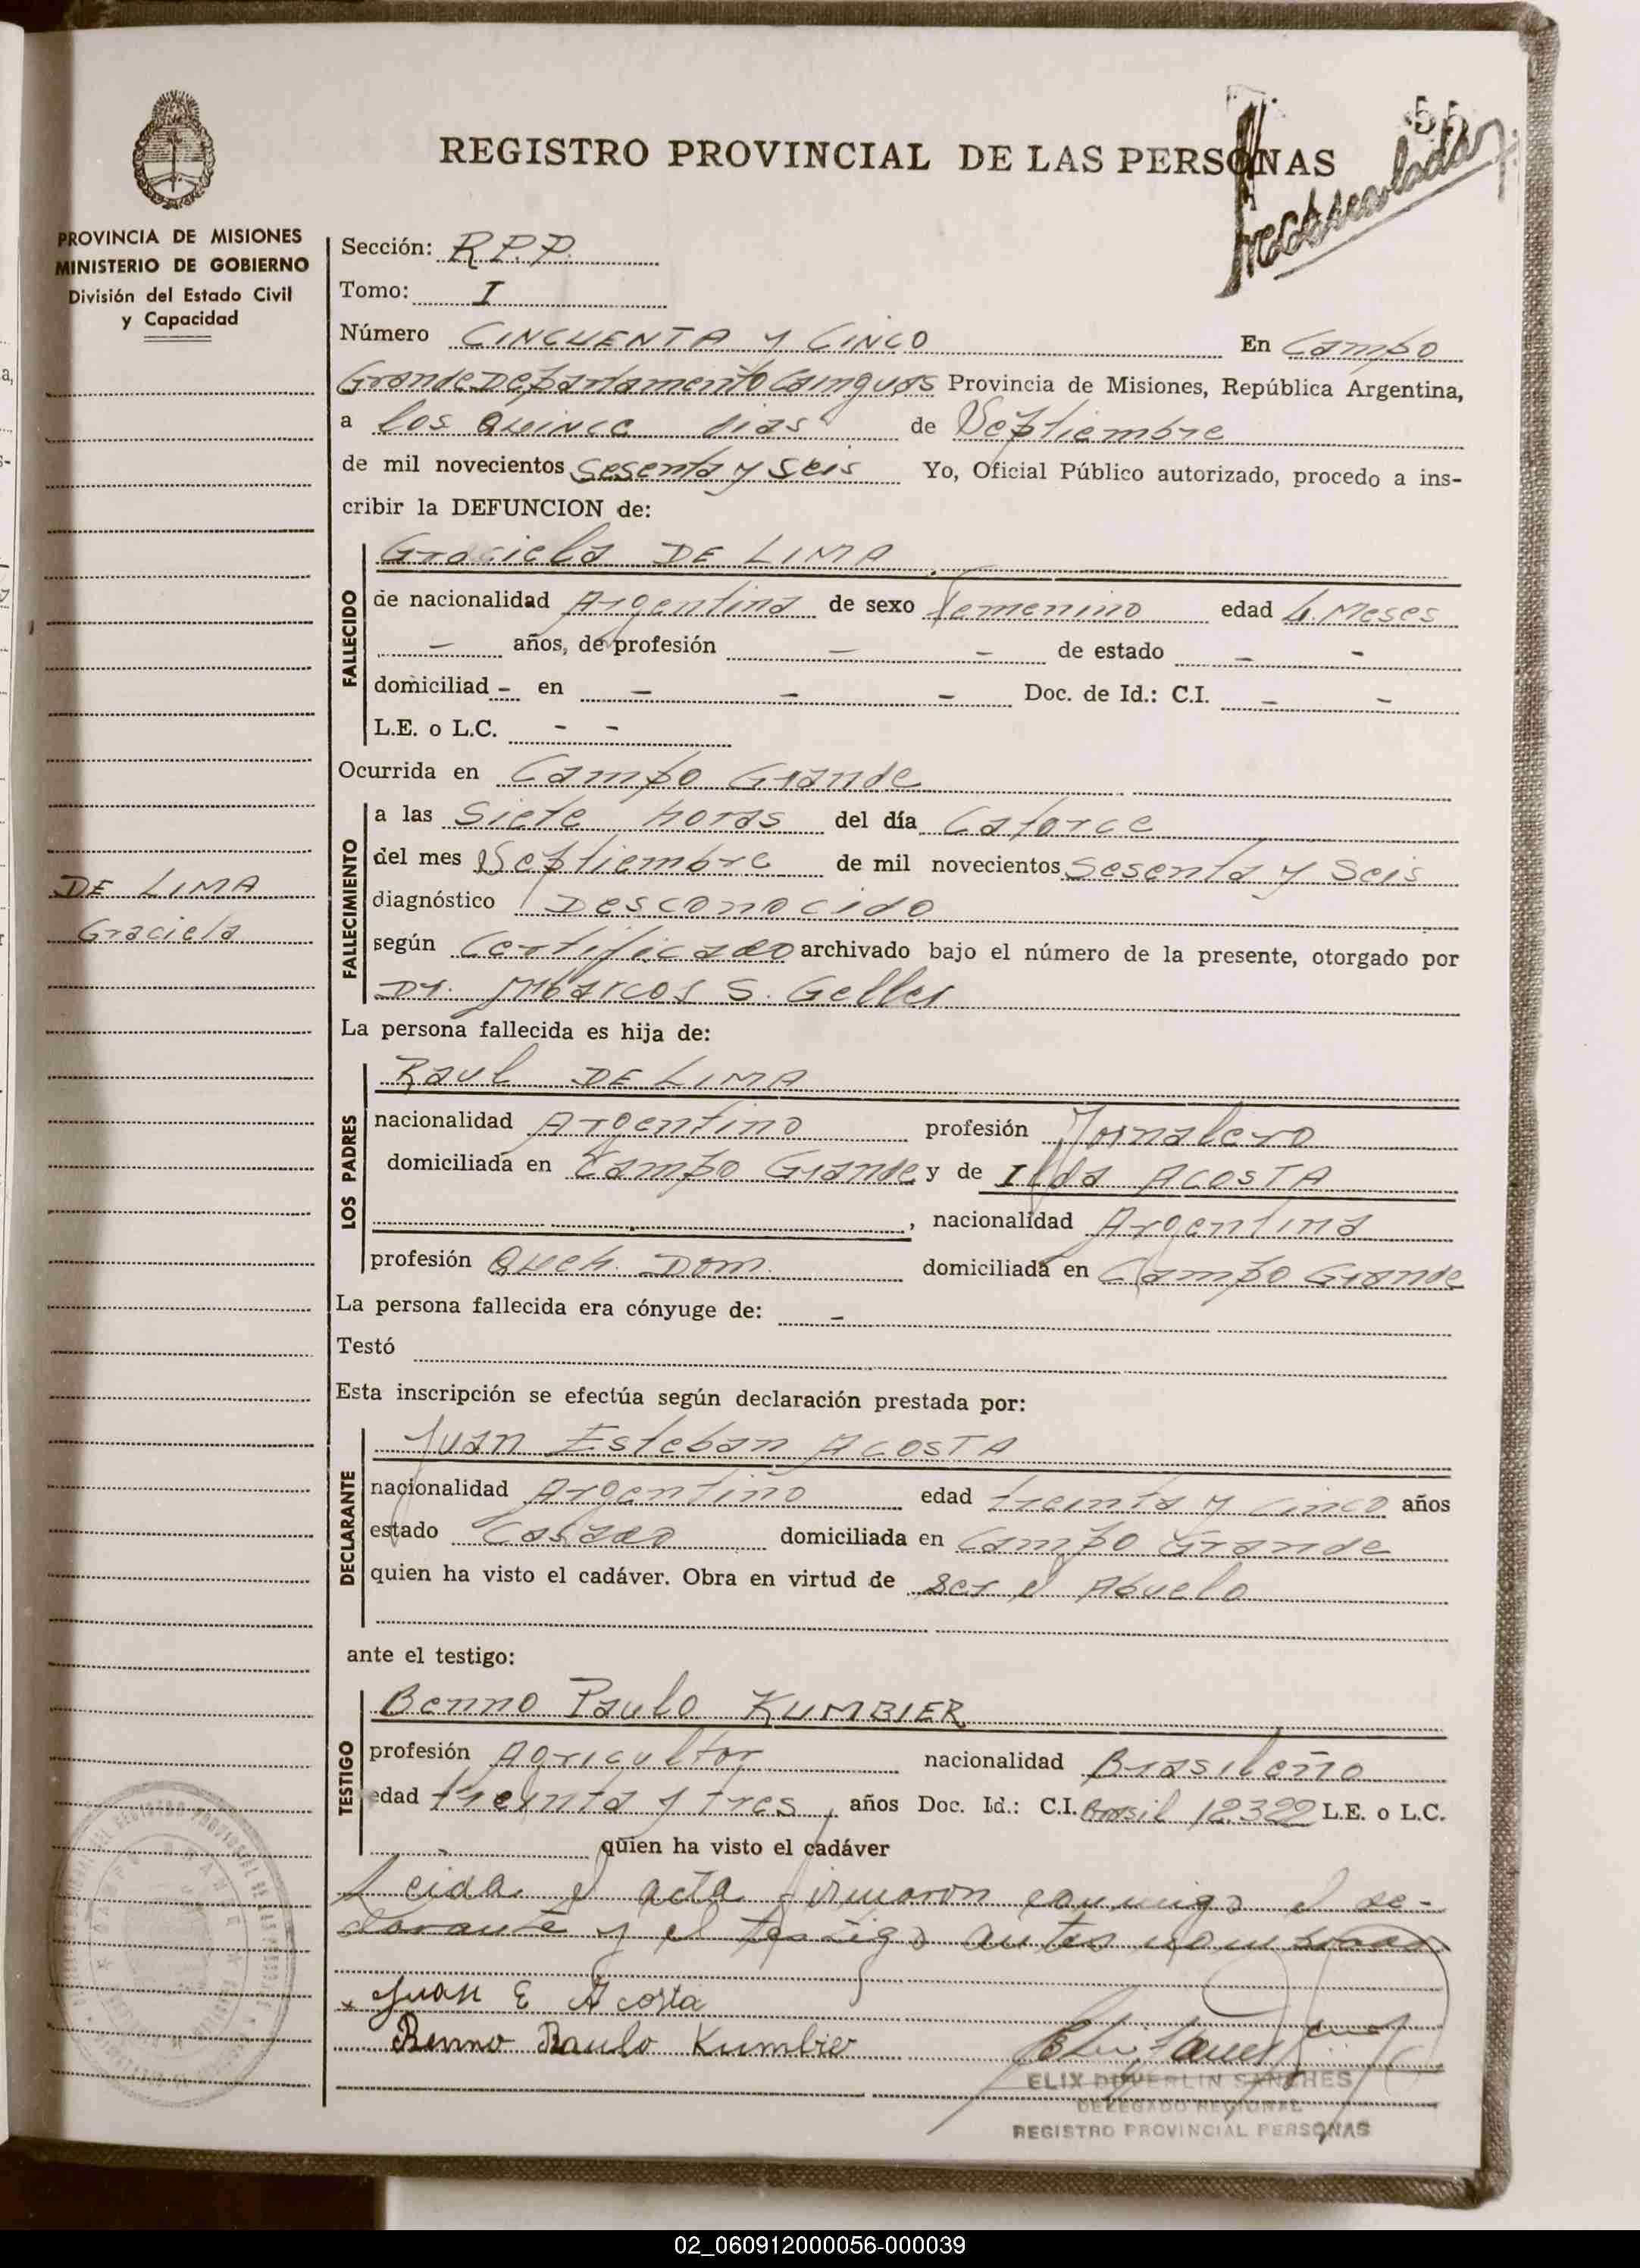 55
REGISTRO PROVINCIAL DE LAS PERSONAS
PROVINCIA DE MISIONES
MINISTERIO DE GOBIERNO
División del Estado Civil
y Capacidad
DE LIMA
Graciela
Sección: R.P.P.
Tomo: I
Número CINCUENTA Y CINCO En Campo
Grande Departamento Cainguas Provincia de Misiones, República Argentina,
a los quince dias de Septiembre
de mil novecientos sesenta y seis Yo, Oficial Público autorizado, procedo a ins-
cribir la DEFUNCION de:
FALLECIDO
Graciela DE LIMA
de nacionalidad Argentina de sexo Femenino edad 4. Meses
- años, de profesión - - de estado - -
domiciliad - en - - - Doc. de Id.: C.I. - -
L.E. o L.C. - -
Ocurrida en Campo Grande
FALLECIMIENTO
a las Siete horas del día Catorce
del mes Septiembre de mil novecientos sesenta y seis
diagnóstico Desconocido
según Certificado archivado bajo el número de la presente, otorgado por
Dr. Marcos S. Geller
La persona fallecida es hija de:
LOS PADRES
Raul DE LIMA
nacionalidad Argentino profesión Jornalero
domiciliada en Campo Grande y de Ilda ACOSTA
, nacionalidad Argentina
profesión Queh. Dom. domiciliada en Campo Grande
La persona fallecida era cónyuge de: -
Testó
Esta inscripción se efectúa según declaración prestada por:
DECLARANTE
Juan Esteban ACOSTA
nacionalidad Argentino edad treinta y cinco años
estado Casado domiciliada en Campo Grande
quien ha visto el cadáver. Obra en virtud de ser el Abuelo
ante el testigo:
TESTIGO
Benno Paulo KUMBIER
profesión Agricultor nacionalidad Brasileño
edad treinta y tres, años Doc. Id.: C.I. Brasil 12.322 L.E. o L.C.
- quien ha visto el cadáver
Leida el acta firmaron conmigo el de-
clarante y el testigo antes nombrado
x Juan E Acosta
Benno Paulo Kumbier
ELIX DUVERLIN SANCHES
DELEGADO REGIONAL
REGISTRO PROVINCIAL PERSONAS
02_060912000056-000039